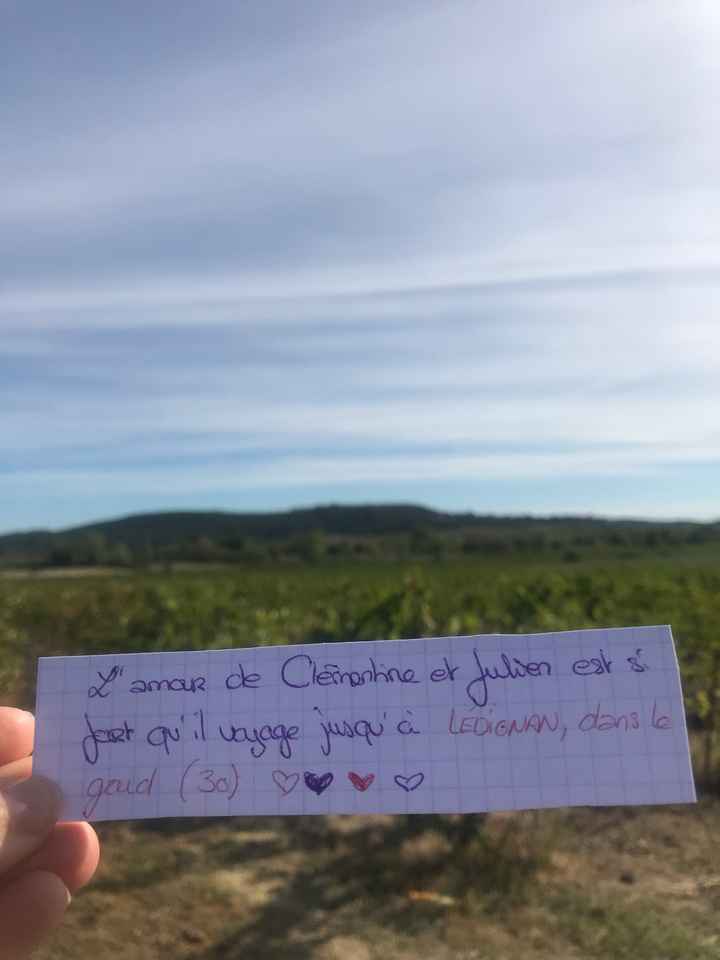 L'amour de Clémentine et Julien est si
fort qu'il voyage jusqu'à LÉDIGNAN, dans le
gard (30)